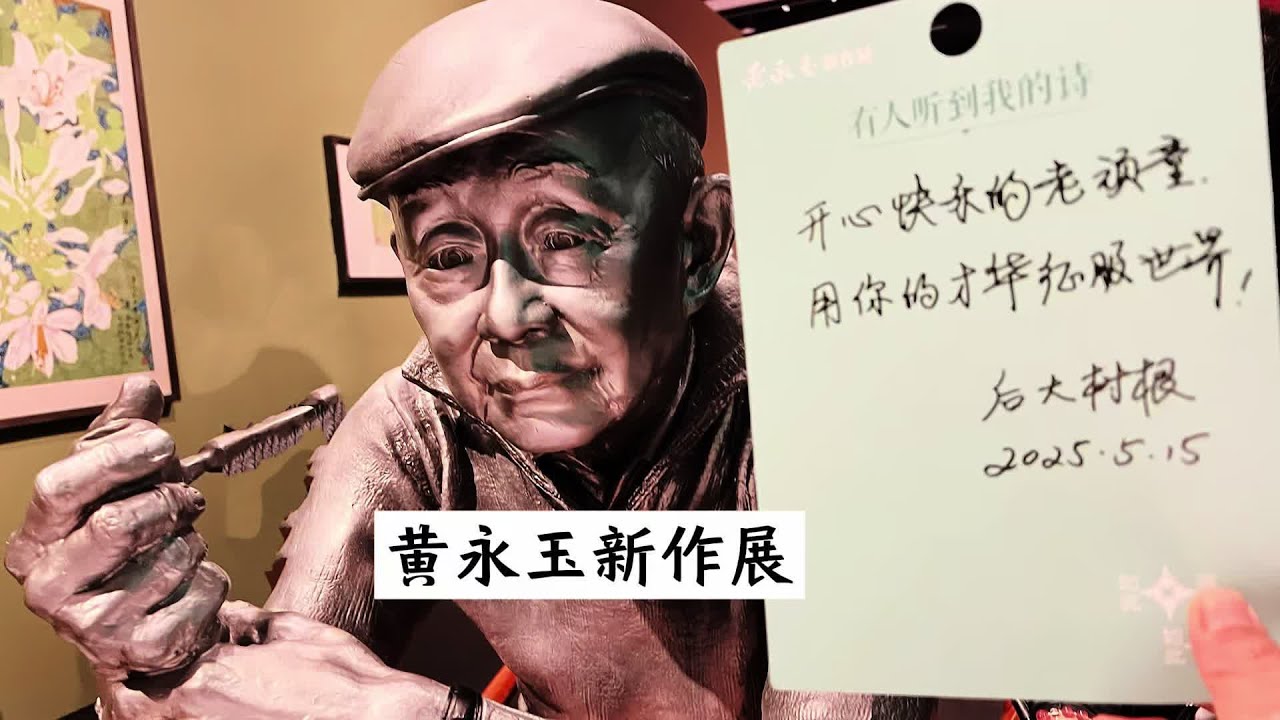 有人听到我的诗
开心快乐的老顽童.
用你的才华征服世界!
后大村根
2025.5.15
黄永玉新作展